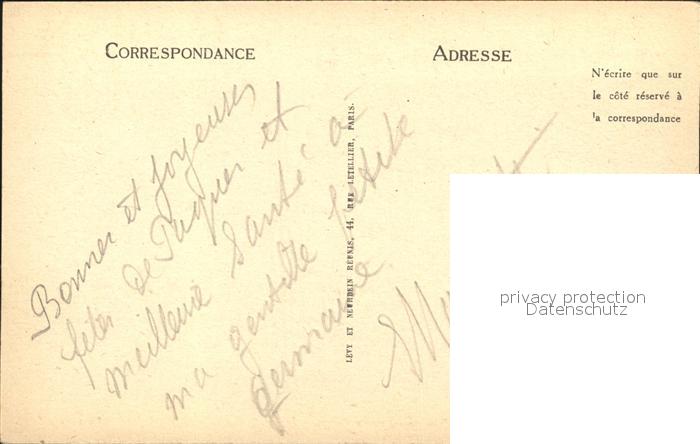 CORRESPONDANCE
ADRESSE
N'écrire que sur
le côté réservé à
la correspondance
Bonnes et joyeuses
fêtes de Pâques et
meilleure santé à
ma gentille petite
Germaine
LÉVY ET NEURDEIN RÉUNIS, 44, RUE LETELLIER, PARIS.
privacy protection
Datenschutz